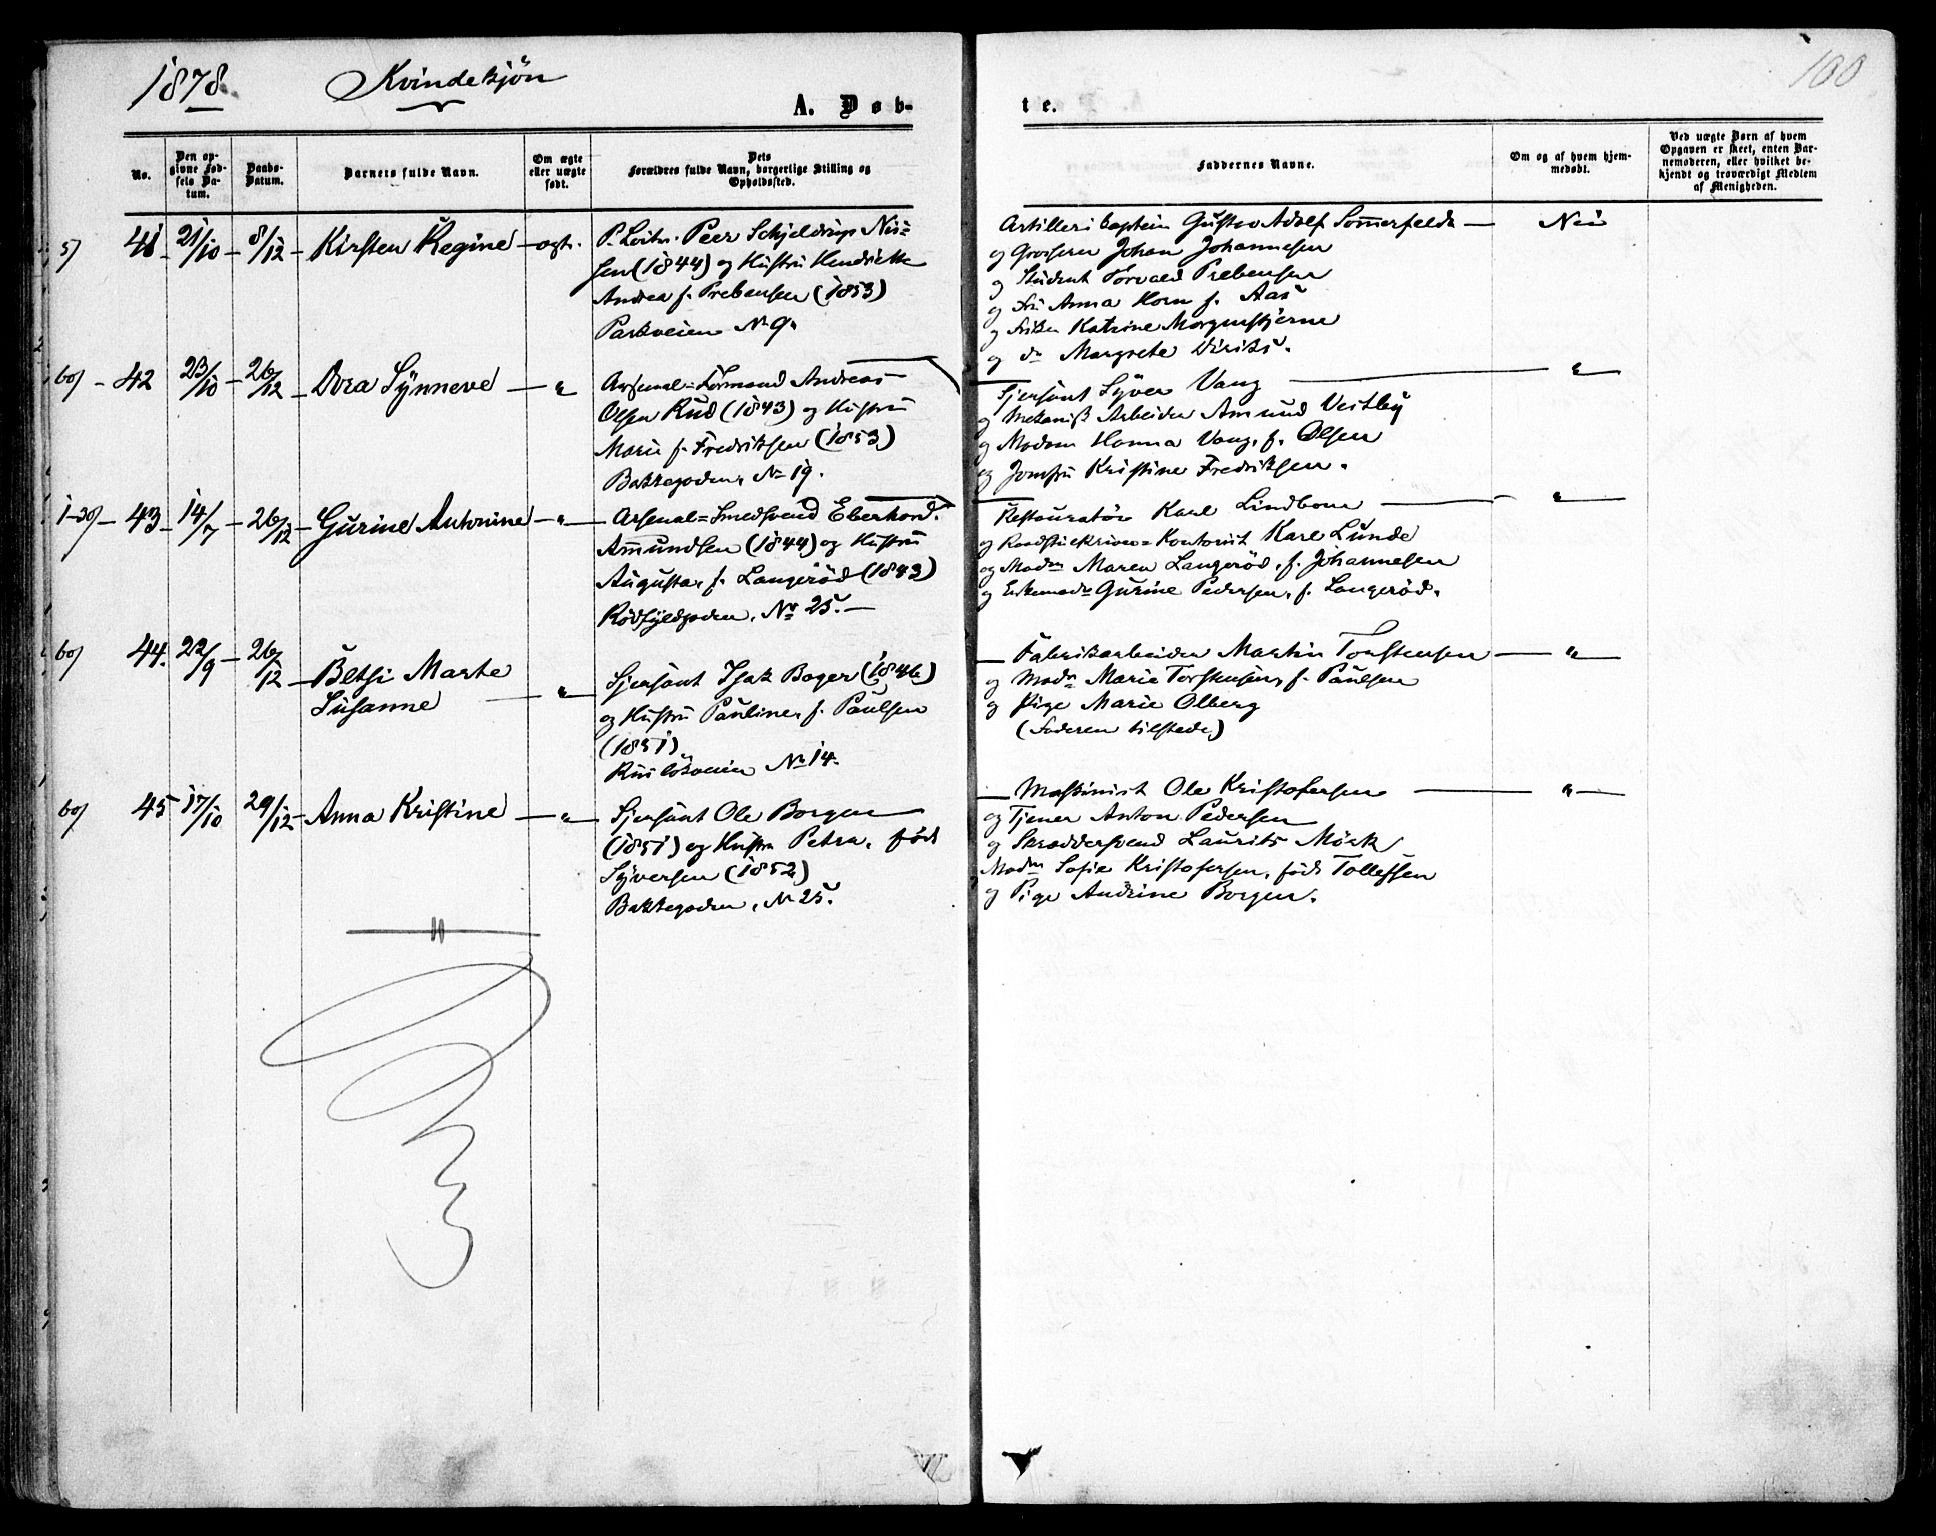 1878.
Kvindekjön
A. Døb-
te.
100
No.
Den op-
givne Fød-
sels Da-
tum.
Daabs-
Datum.
Barnets fulde Navn.
Om ægte
eller uægte
født.
Dets
Forældres fulde Navn, borgerlige Stilling og
Opholdssted.
Faddernes Navne.
Om og af hvem hjem-
medøbt.
Ved uægte Børn af hvem
Opgaven er skeet, enten Bar-
nemoderen, eller hvilket be-
kjendt og troværdigt Medlem
af Menigheden.
5) 41 21/10 8/12 Kirsten Regine ægte. Peer Schjeldrup Nis=
sen (1844) og Hustru Hendrikke
Andrea f. Prebensen (1853)
Parkveien No 9.
Artilleri Captein Gustav Adolf Sommerfeldt — Nei
og Grosserer Johan Johannesen
og Student Torvald Prebensen
og Fru Anna Horn f. Aas
og Frøken Katrine Morgenstjerne
og do Margrete Diriks.
60) 42 23/10 26/12 Dora Synneve — " Arsenal=Formand Andreas
Olsen Rud (1843) og Hustru
Marie f. Fredriksen (1853)
Bakkegaden, No 19.
Sjersant Syver Vang — "
og Mekanisk Arbeider Amund Vestby
og Madam Hanna Vang, f. Olsen
og Jomfru Kristine Fredriksen.
43 14/7 26/12 Gurine Antonine — " — Arsenal=Smedsvend Eberhard
Amundsen (1844) og Hustru
Augusta, f. Langeröd (1843)
Rödfyldgaden, No 25. —
Restauratör Karl Lindbom — "
og Kontorist Karl Lunde
og Madm Maren Langeröd, f. Johannesen
og Enkemadm Gurine Pedersen, f. Langeröd.
60) 44. 22/9 26/12 Betsi Marte
Susanne — " Sjersant Isak Boger (1846)
og Hustru Pauline, f. Paulsen
(1851)
No 14.
— Fabrikarbeider Martin Torstensen — "
og Madm Marie Torstensen, f. Paulsen
og Pige Marie Olberg
(Faderen tilstede)
60) 45 17/10 29/12 Anna Kristine — " — Sjersant Ole Borgen
(1851) og Hustru Petra, född
Syversen (1852)
Bakkegaden, No 25.
— Maskinist Ole Kristofersen — "
og Tjener Anton Pedersen
og Skræddersvend Laurits Mörk
Madm Sofie Kristofersen, född Tollefsen
og Pige Andrine Borgen.